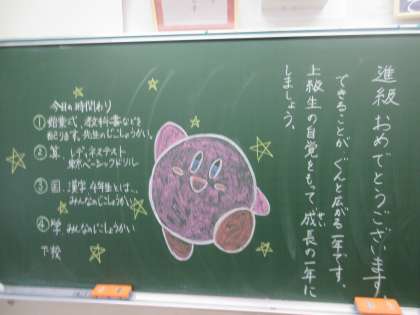 進級 おめでとうございます
できることが、ぐんと広がる一年です。
上級生の自覚をもって、成長の一年に
せい
しましょう。
今日の時間わり
①始業式、教科書などを
配ります。先生のじこしょうかい。
②算、レディネステスト
東京ベーシックドリル
③国、漢字 4年生とは、、、
みんなのじこしょうかい
④学 みんなのじこしょうかい
下校